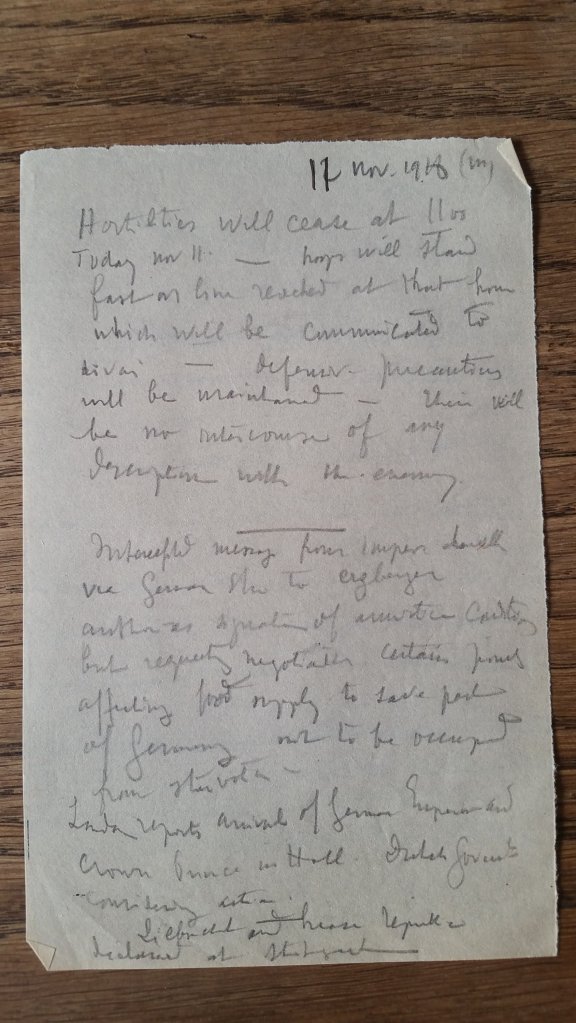 11 Nov. 1918 (m)
Hostilities will cease at 1100
Today Nov 11. — troops will stand
fast on line reached at that hour
which will be communicated to
— defensive precautions
will be maintained — There will
be no intercourse of any
description with the enemy
Intercepted message from
via German to Erzberger
signature of armistice
but requests negotiate certain points
affecting food supply to save part
of Germany not to be occupied
from starvation —
London reports arrival of German Emperor and
Crown Prince in Holl. Dutch
considering
and republic
declared at Stuttgart